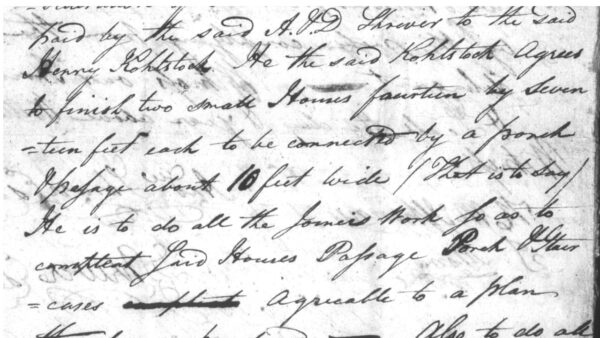 paid by the said A. & D Shriver to the said
Henry Kohlstock. He the said Kohlstock Agrees
to finish two small Houses fourteen by Seven
=teen feet each to be connected by a porch
& passage about 10 feet wide / That is to say /
He is to do all the Joiners Work so as to
compleat Said Houses Passage Porch & Stair
=cases Agreeable to a plan
Also to do all